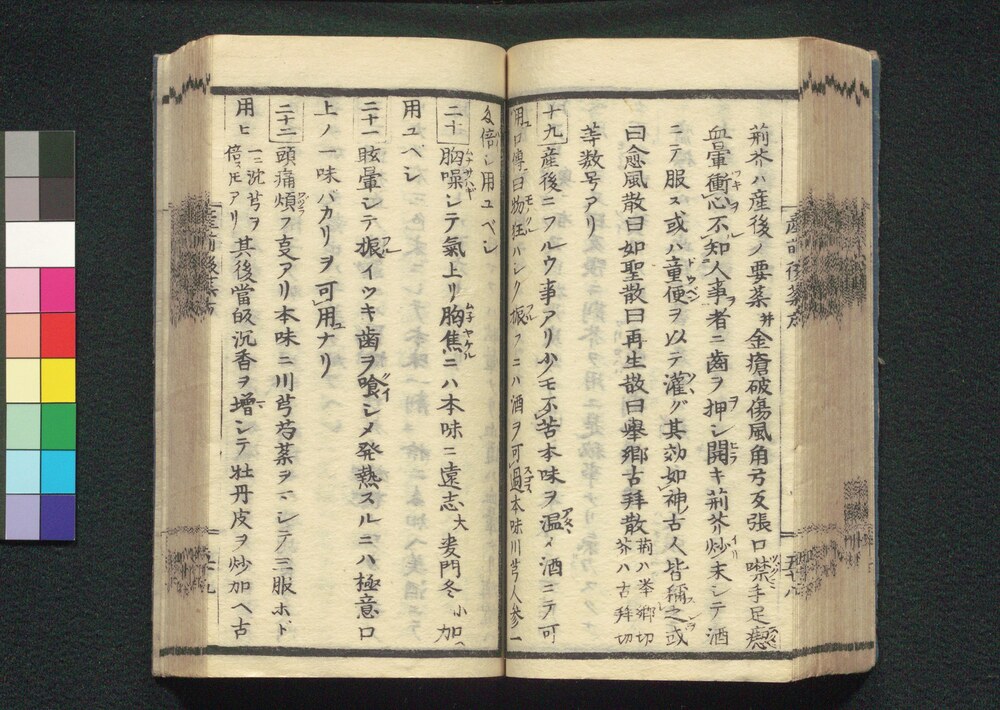 荊芥ハ産後ノ要薬并金瘡破傷風角弓反張口噤手足瘛
血暈衝心不知人事者ニ歯ヲ押シ開キ荊芥炒末シテ酒
ニテ服ス或ハ童便ヲ以テ灌グ其効如神古人皆稱之或
曰愈風散曰如聖散曰再生散曰擧郷古拜散 荊ハ挙郷切 芥ハ古拜切
等数号アリ
十九 産後ニフルウ事アリ少モ不苦本味ヲ温メ酒ニテ可
用ユ口傳曰物狂ハシク振フニハ酒ヲ可過本味川芎人参一
多倍シ用ユベシ
二十 胸噪シテ氣上リ胸焦ニハ本味ニ遠志大麦門冬小加ヘ
用ユベシ
二十一 眩暈シテ振イツキ歯ヲ喰シメ発熱スルニハ極意口
上ノ一味バカリヲ可用ナリ
二十二 頭痛煩フ支アリ本味ニ川芎芍薬ヲマシテ三服ホド
用ヒ 一ニ沈芎ヲ倍ストモアリ 其後當皈沉香ヲ増シテ牡丹皮ヲ炒加ヘ古